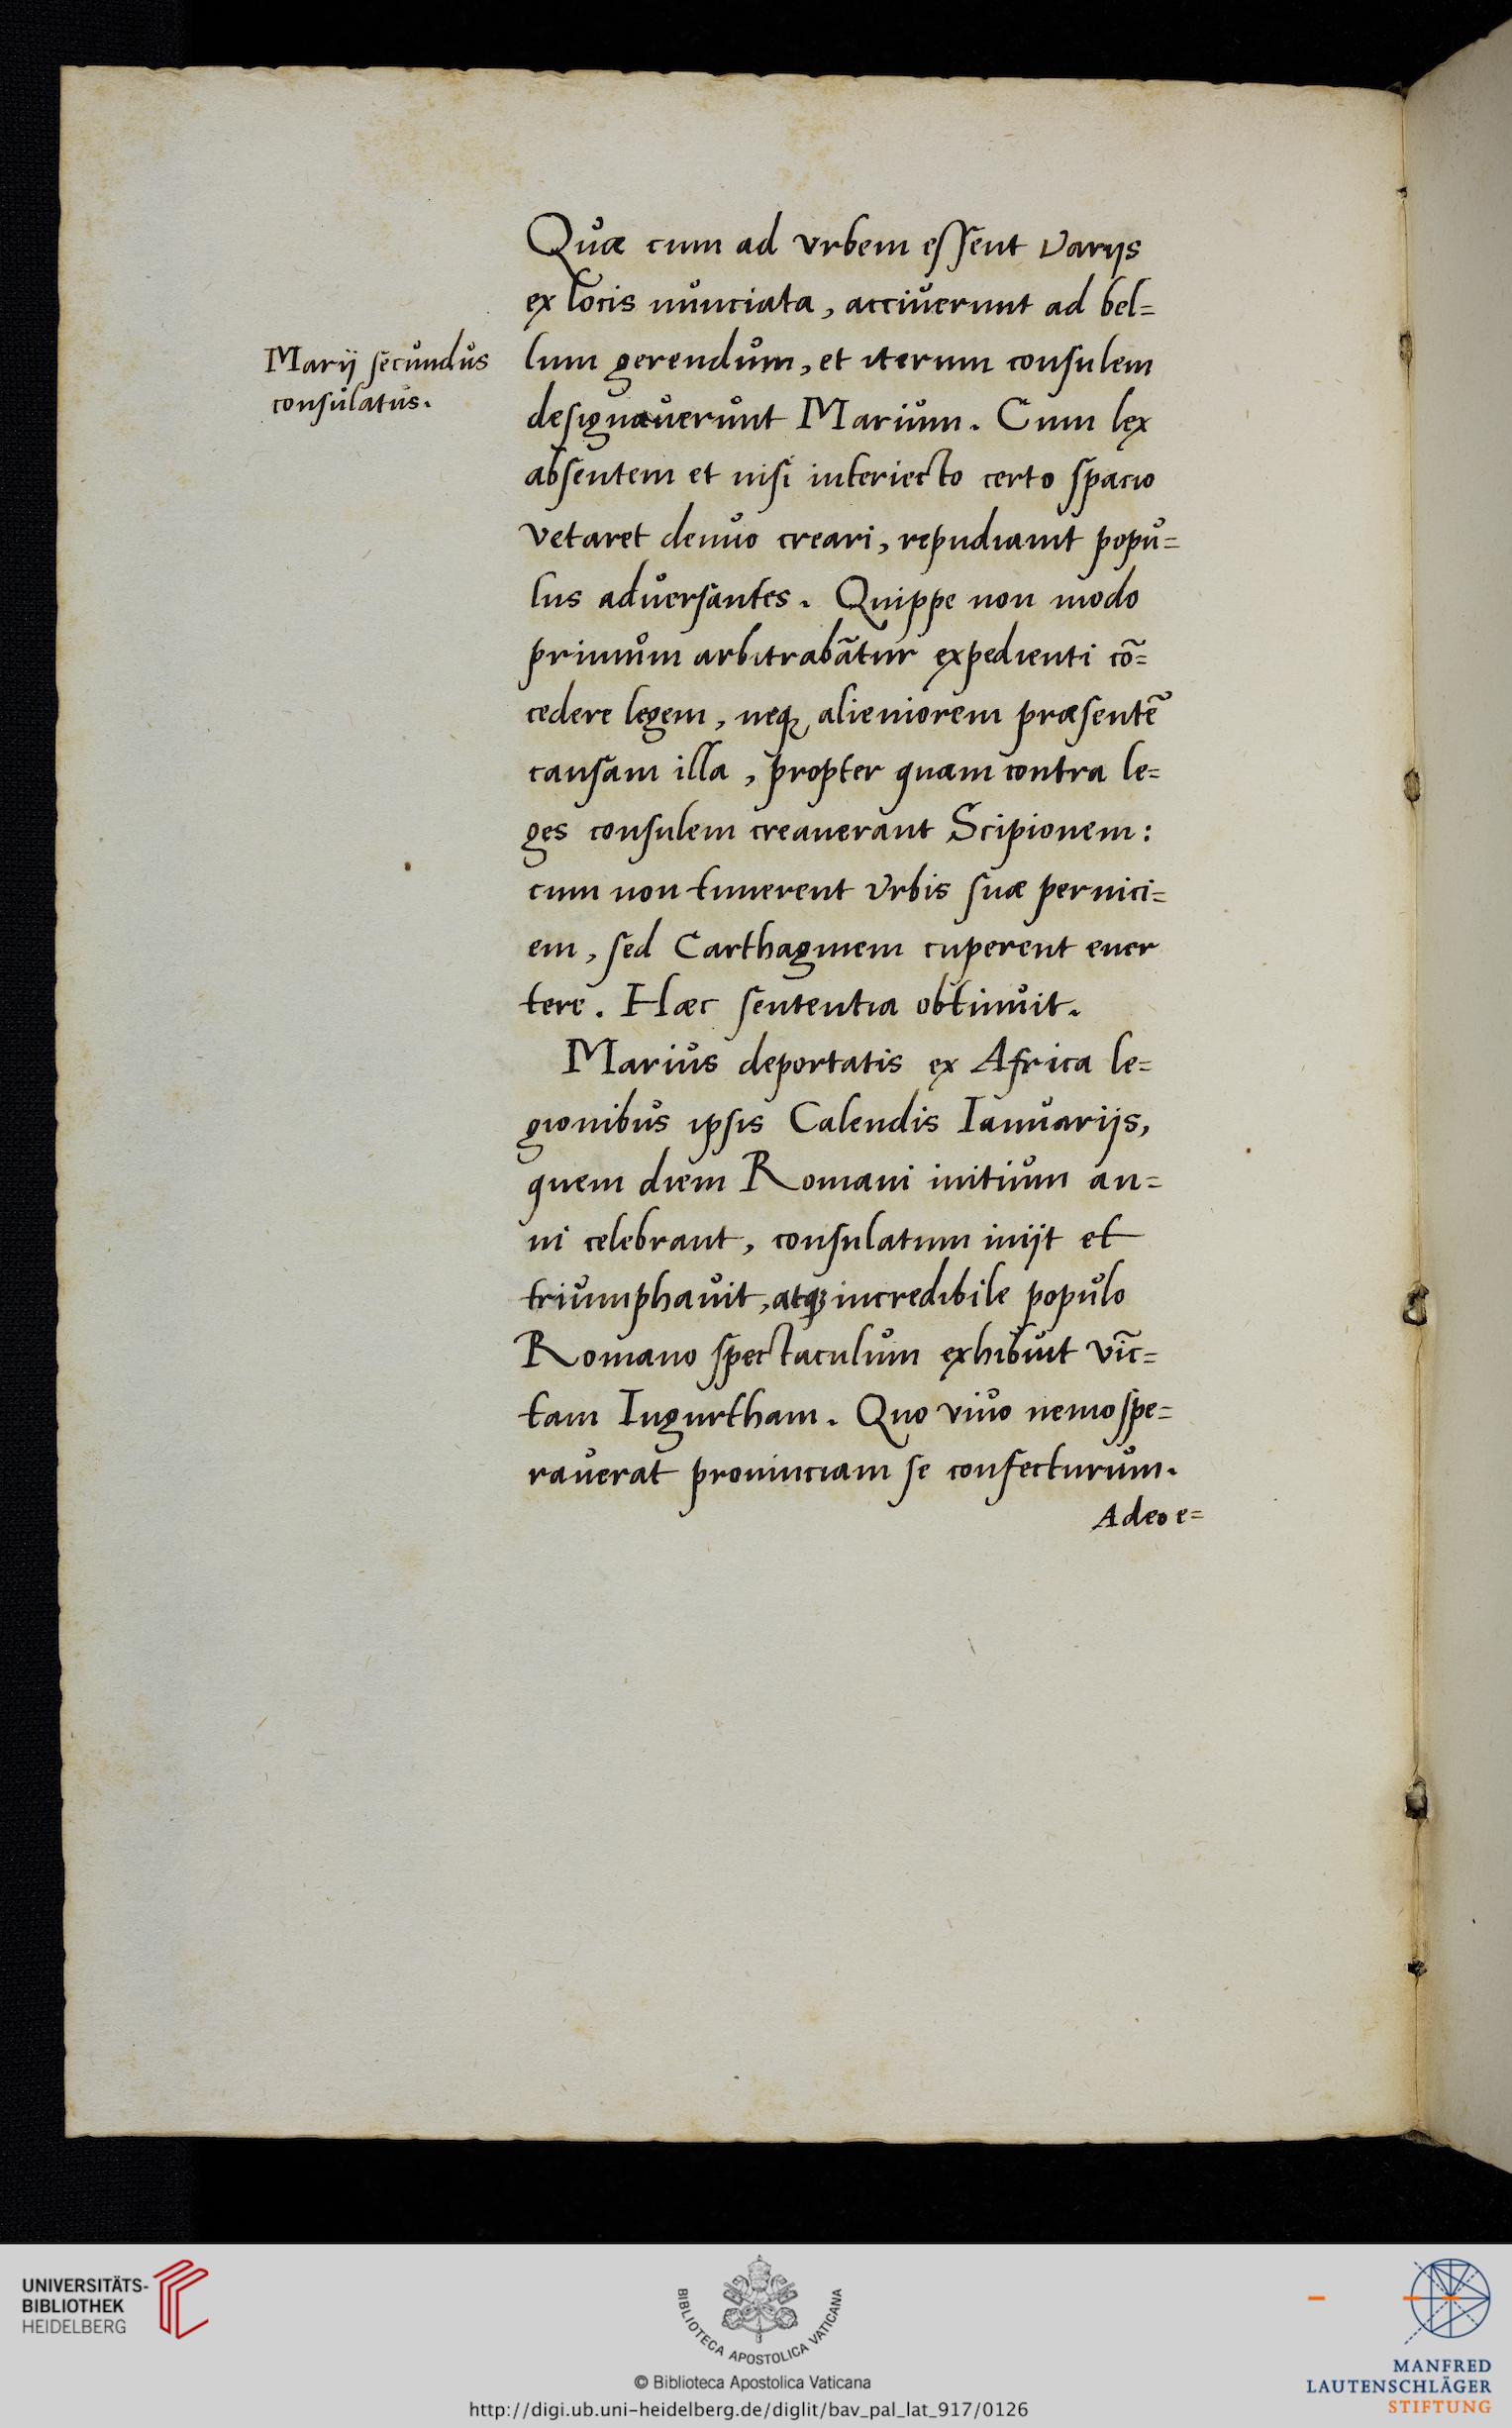 Quæ cum ad vrbem essent varijs
ex locis nunciata, acciuerunt ad bel=
Marij secundus
consulatus.
lum gerendum, et iterum consulem
designauerunt Marium. Cum lex
absentem et nisi interiecto certo spacio
vetaret denuo creari, repudiauit popu=
lus aduersantes. Quippe non modo
primum arbitrabãtur expedienti cõ=
cedere legem, neq; alieniorem præsentẽ
causam illa, propter quam contra le=
ges consulem creauerant Scipionem:
cum non timerent vrbis suæ pernici=
em, sed Carthaginem cuperent euer
tere. Hæc sententia obtinuit.
Marius deportatis ex Africa le=
gionibus ipsis Calendis Ianuarijs,
quem diem Romani initium an=
ni celebrant, consulatum inijt et
triumphauit, atq; incredibile populo
Romano spectaculum exhibuit vĩc=
tam Iugurtham. Quo viuo nemo spe=
rauerat prouinciam se confecturum.
Adeo e=
UNIVERSITÄTS-
BIBLIOTHEK
HEIDELBERG
BIBLIOTECA APOSTOLICA VATICANA
© Biblioteca Apostolica Vaticana
http://digi.ub.uni-heidelberg.de/diglit/bav_pal_lat_917/0126
MANFRED
LAUTENSCHLÄGER
STIFTUNG